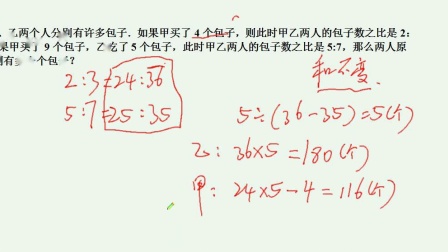 乙两个人分别有许多包子.如果甲买了4个包子,则此时甲乙两人的包子数之比是2:
果甲买了9个包子,乙吃了5个包子,此时甲乙两人的包子数之比是5:7,那么两人原
别有 个包子?
2:3=24:36
5:7=25:35
和不变.
5÷(36-35)=5(个)
乙:36×5=180(个)
甲:24×5-4=116(个)